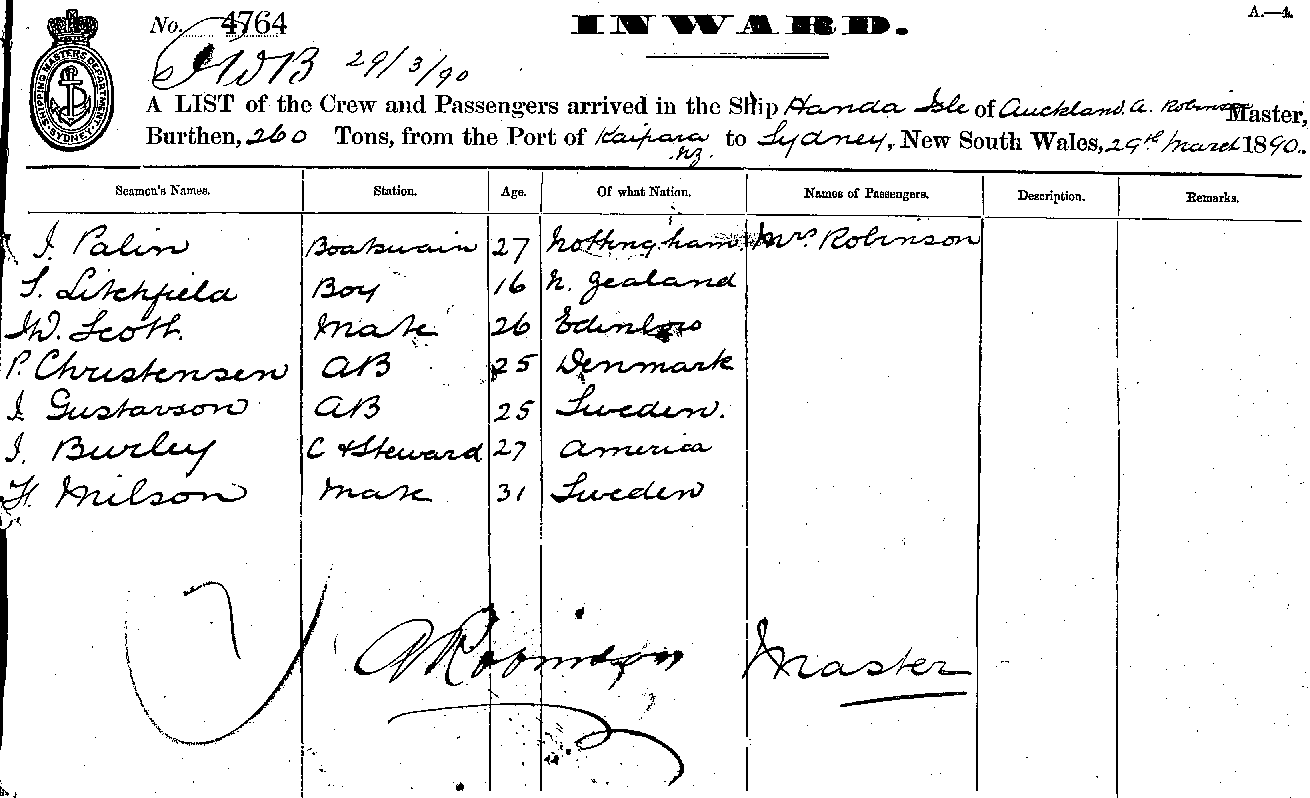 No. 4764
INWARD.
A.—4.
SHIPPING MASTERS DEPARTMENT SYDNEY
29/3/90
A LIST of the Crew and Passengers arrived in the Ship Handa Isle of Auckland. A. Robinson Master,
Burthen, 260 Tons, from the Port of Kaipara NZ. to Sydney, New South Wales, 29th March 1890.
Seamen's Names. Station. Age. Of what Nation. Names of Passengers. Description. Remarks.
J. Palin Boatswain 27 Nottingham Mrs Robinson
S. Litchfield Boy 16 N. Zealand
W. Scott Mate 26 Edinbro
P. Christensen AB 25 Denmark
J. Gustavson AB 25 Sweden.
J. Burley C & Steward 27 America
Milson Mate 31 Sweden
7 A Robinson Master